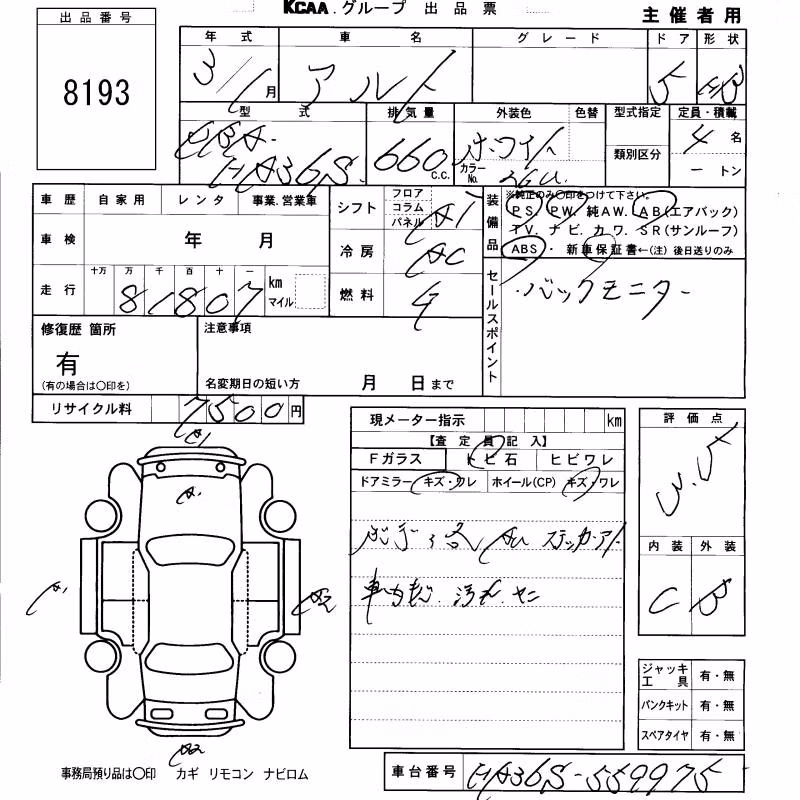 KCAA.グループ 出品票
主催者用
出品番号
8193
年式 車名 グレード ドア 形状
3/1月 アルト 5 HB
型式 排気量 外装色 色替 型式指定 定員・積載
HBA-HA36S 660c.c. ホワイト カラーNo. 26U 類別区分 4名 ートン
車歴 自家用 レンタ 事業.営業車
シフト フロア コラム パネル AT
車検 年 月
冷房 AC
走行 十万 万 千 百 十 一 81807 km マイル
燃料 G
装備品 ※純正のみ〇印をつけて下さい。
PS. PW. 純AW. AB(エアバック)
TV. ナビ. カワ. SR(サンルーフ)
ABS・ 新車保証書←(注) 後日送りのみ
セールスポイント
・バックモニター
修復歴 箇所
有
(有の場合は〇印を)
注意事項
名変期日の短い方 月 日まで
リサイクル料 7500円
現メーター指示 km
【査定員記入】
Fガラス トビ石 ヒビワレ
ドアミラー キズ・ワレ ホイール(CP) キズ・ワレ
ステッカーアト
汚れ.ヤニ
評価点
3.5
内装 外装
C B
A1
A1
A1
A2
A2
ジャッキ工具 有・無
パンクキット 有・無
スペアタイヤ 有・無
事務局預り品は〇印 カギ リモコン ナビロム
車台番号 HA36S-559975